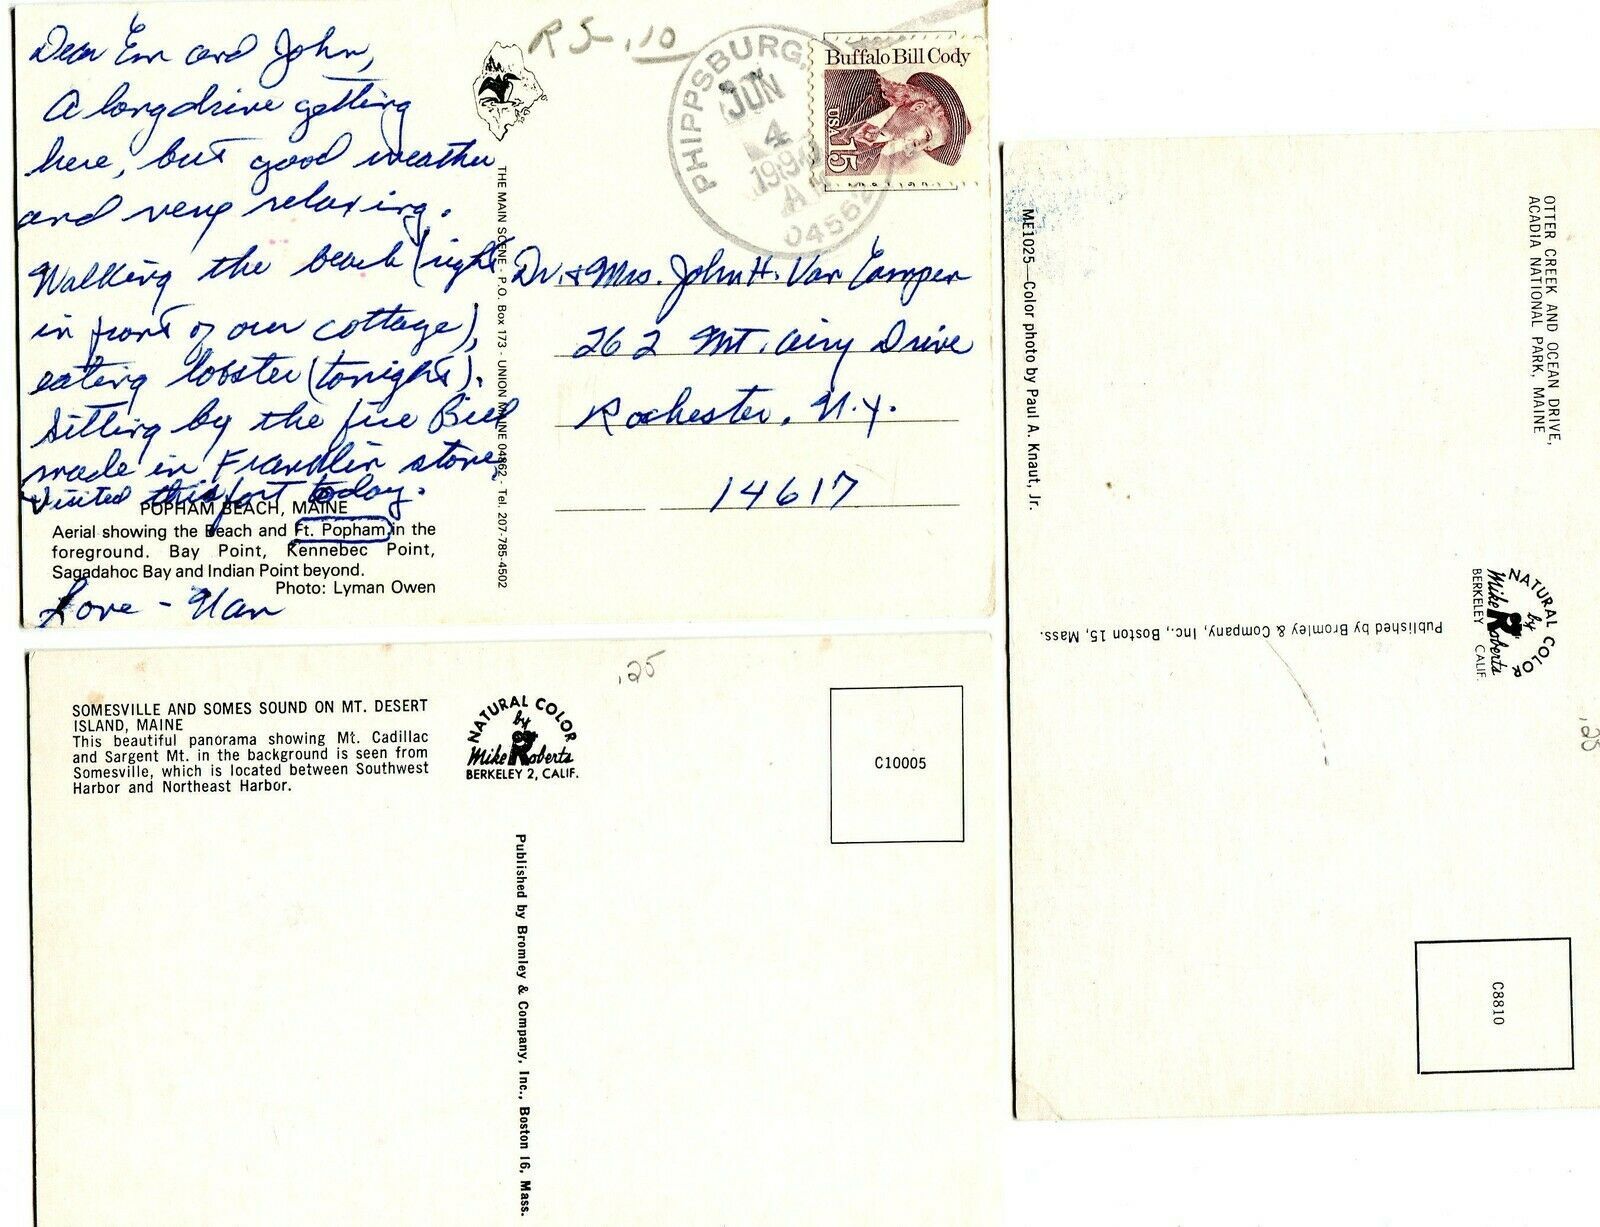 Dear Em and John,
A long drive getting
here, but good weather
and very relaxing.
Walking the beach (right
in front of our cottage),
eating lobster (tonight).
Sitting by the fire Bill
made in Franklin stove.
Visited this fort today.
POPHAM BEACH, MAINE
Aerial showing the Beach and Ft. Popham in the
foreground. Bay Point, Kennebec Point,
Sagadahoc Bay and Indian Point beyond.
Photo: Lyman Owen
Love - Nan
THE MAIN SCENE - P.O. Box 173 - UNION MAINE 04862 - Tel. 207-785-4502
.10
PHIPPSBURG,
JUN
4
AM
04562
Buffalo Bill Cody
USA 15
Dr. & Mrs. John H. Van
262 Mt. Airy Drive
Rochester, N.Y.
14617
SOMESVILLE AND SOMES SOUND ON MT. DESERT
ISLAND, MAINE
This beautiful panorama showing Mt. Cadillac
and Sargent Mt. in the background is seen from
Somesville, which is located between Southwest
Harbor and Northeast Harbor.
NATURAL COLOR
by
Mike Roberts
BERKELEY 2, CALIF.
.25
C10005
Published by Bromley & Company, Inc., Boston 16, Mass.
OTTER CREEK AND OCEAN DRIVE,
ACADIA NATIONAL PARK, MAINE
ME1025—Color photo by Paul A. Knaut, Jr.
NATURAL COLOR
by
Mike Roberts
BERKELEY CALIF.
Published by Bromley & Company, Inc., Boston 15, Mass.
.25
C8810